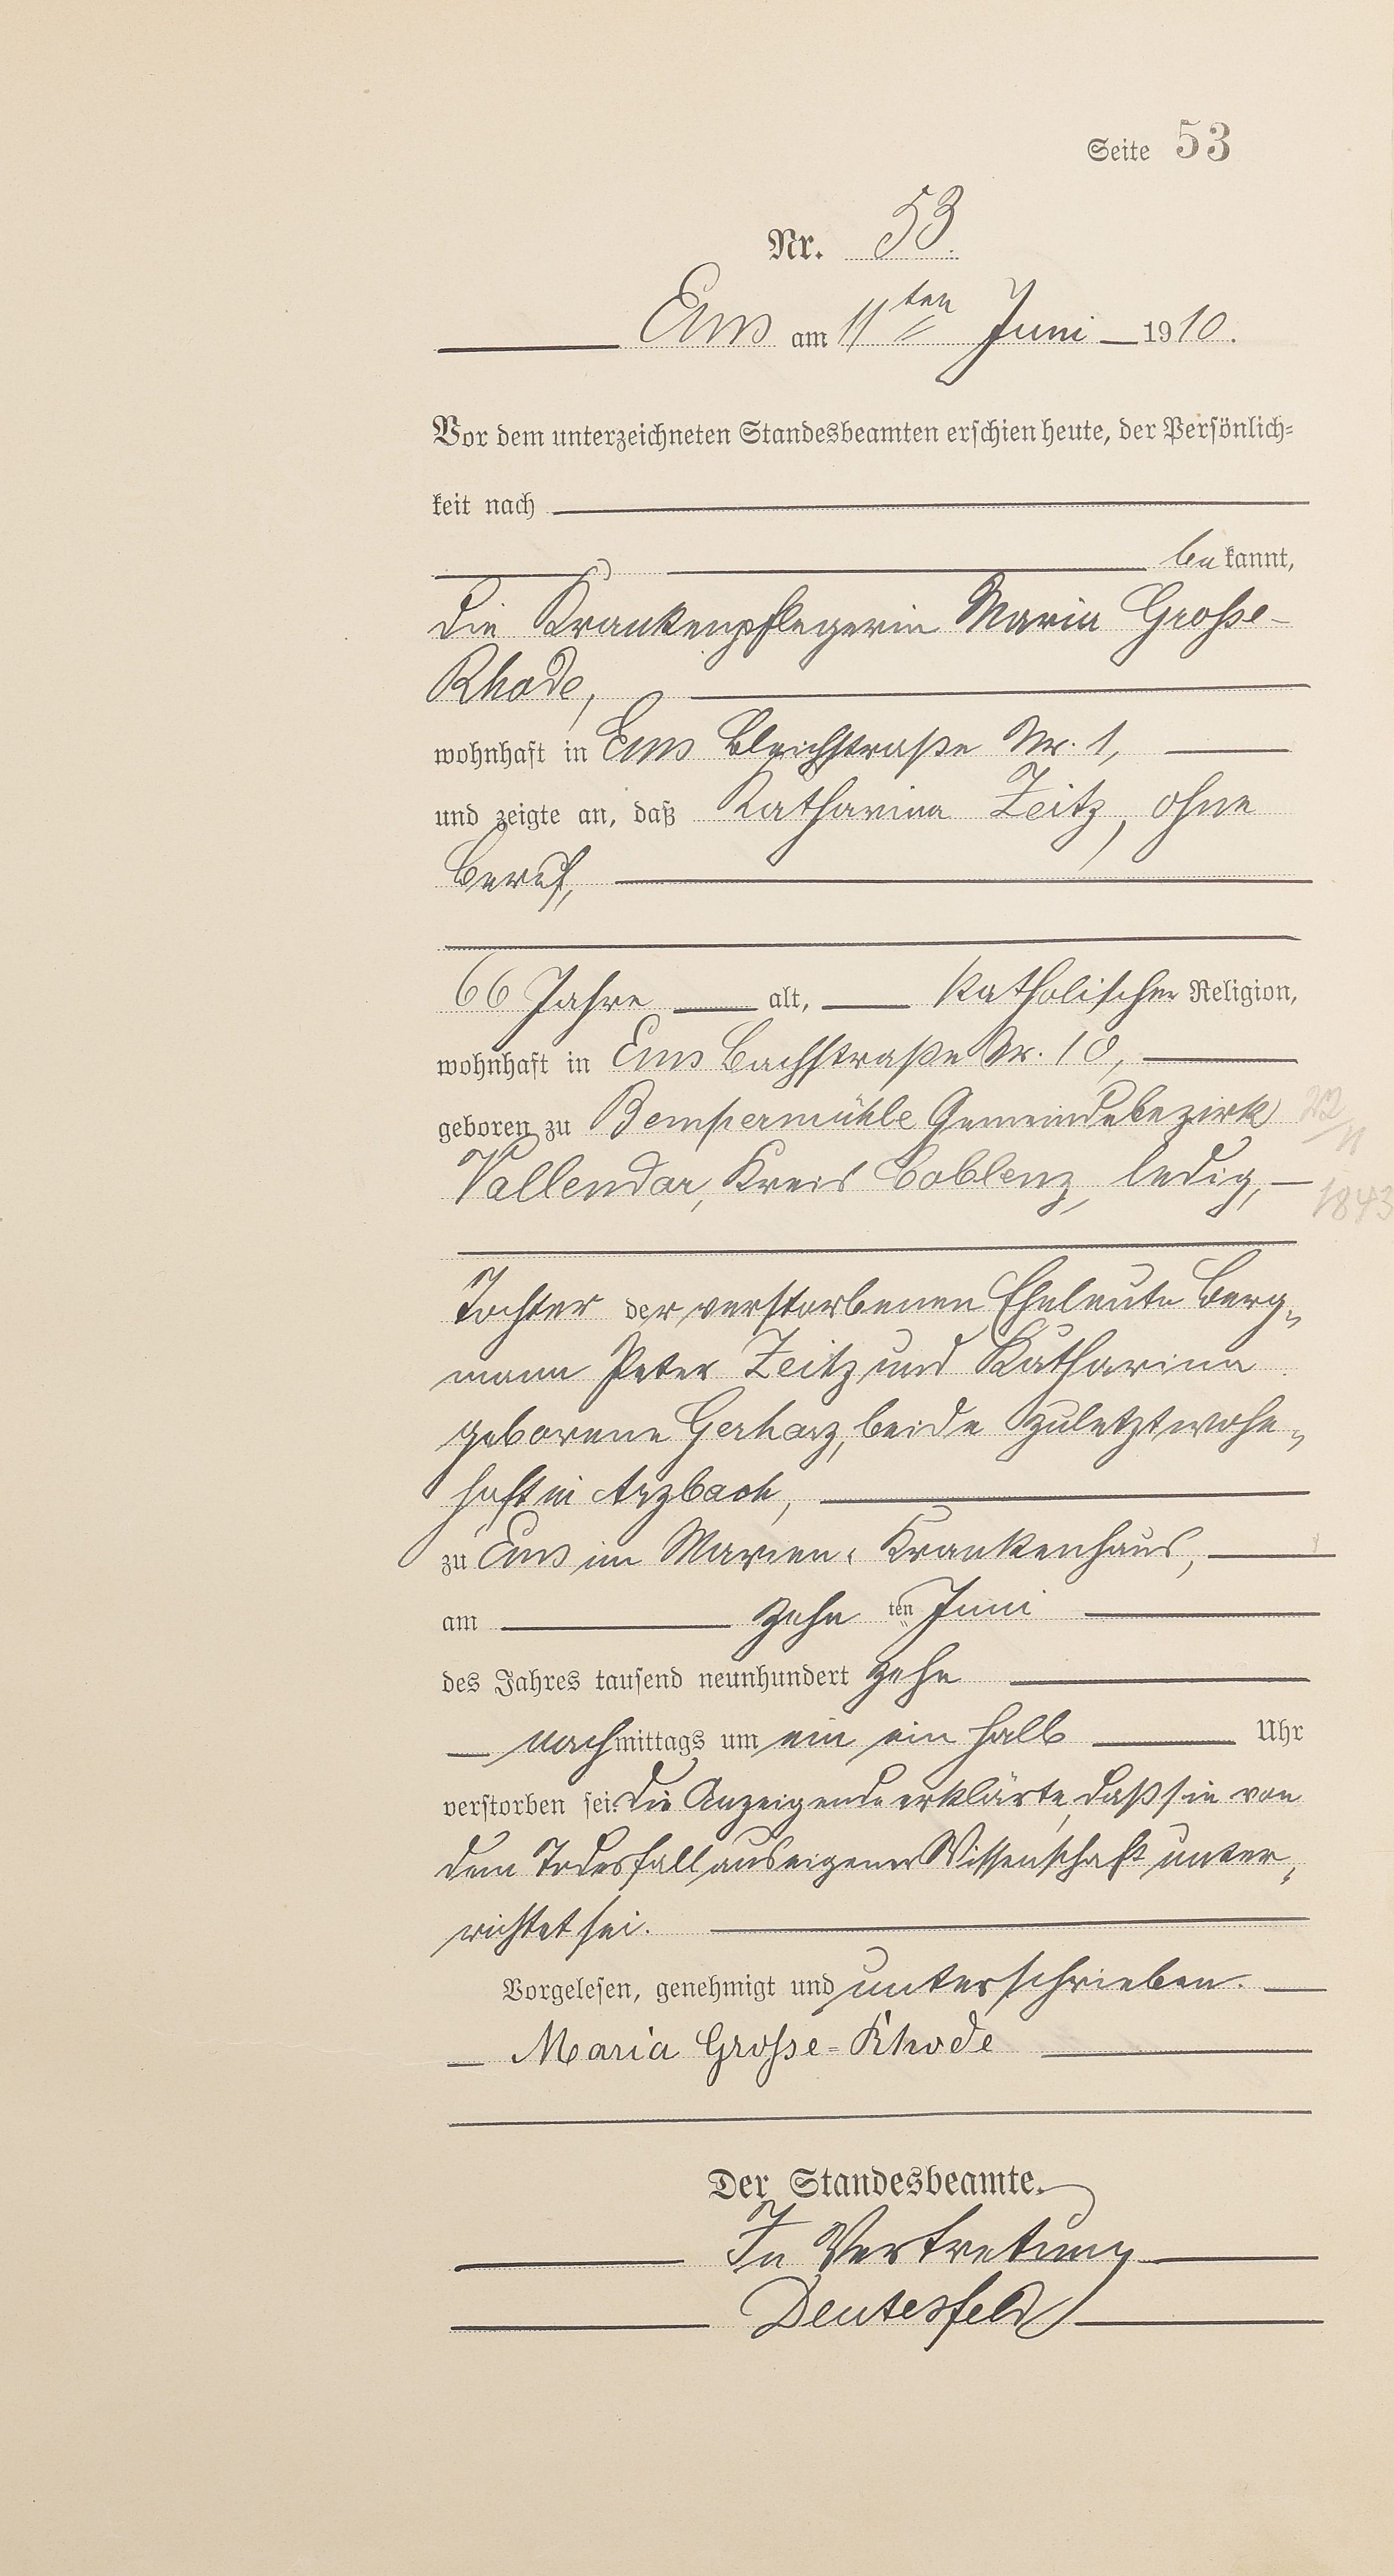 Seite 53
Nr. 53.
Ems am 11ten Juni 1910.
Vor dem unterzeichneten Standesbeamten erschien heute, der Persönlich-
keit nach
bekannt,
die Krankenpflegerin Maria Große-
Rhode,
wohnhaft in Ems Bleichstraße Nr. 1,
und zeigte an, daß Katharina Zeitz, ohne
Beruf,
66 Jahre alt, katholischer Religion,
wohnhaft in Ems Bachstraße Nr. 10,
geboren zu Bempermühle Gemeindebezirk 22/11
Vallendar, Kreis Coblenz, ledig, 1843
Tochter der verstorbenen Eheleute Berg-
mann Peter Zeitz und Katharina
geborene Gerharz, beide zuletzt wohn-
haft in Arzbach,
zu Ems im Marien-Krankenhaus,
am zehnten Juni
des Jahres tausend neunhundert zehn
nachmittags um ein ein halb Uhr
verstorben sei. Die Anzeigende erklärte, daß sie von
dem Todesfall aus eigener Wissenschaft unter-
richtet sei.
Vorgelesen, genehmigt und unterschrieben.
Maria Grosse-Rhode
Der Standesbeamte.
In Vertretung
Deutesfeld